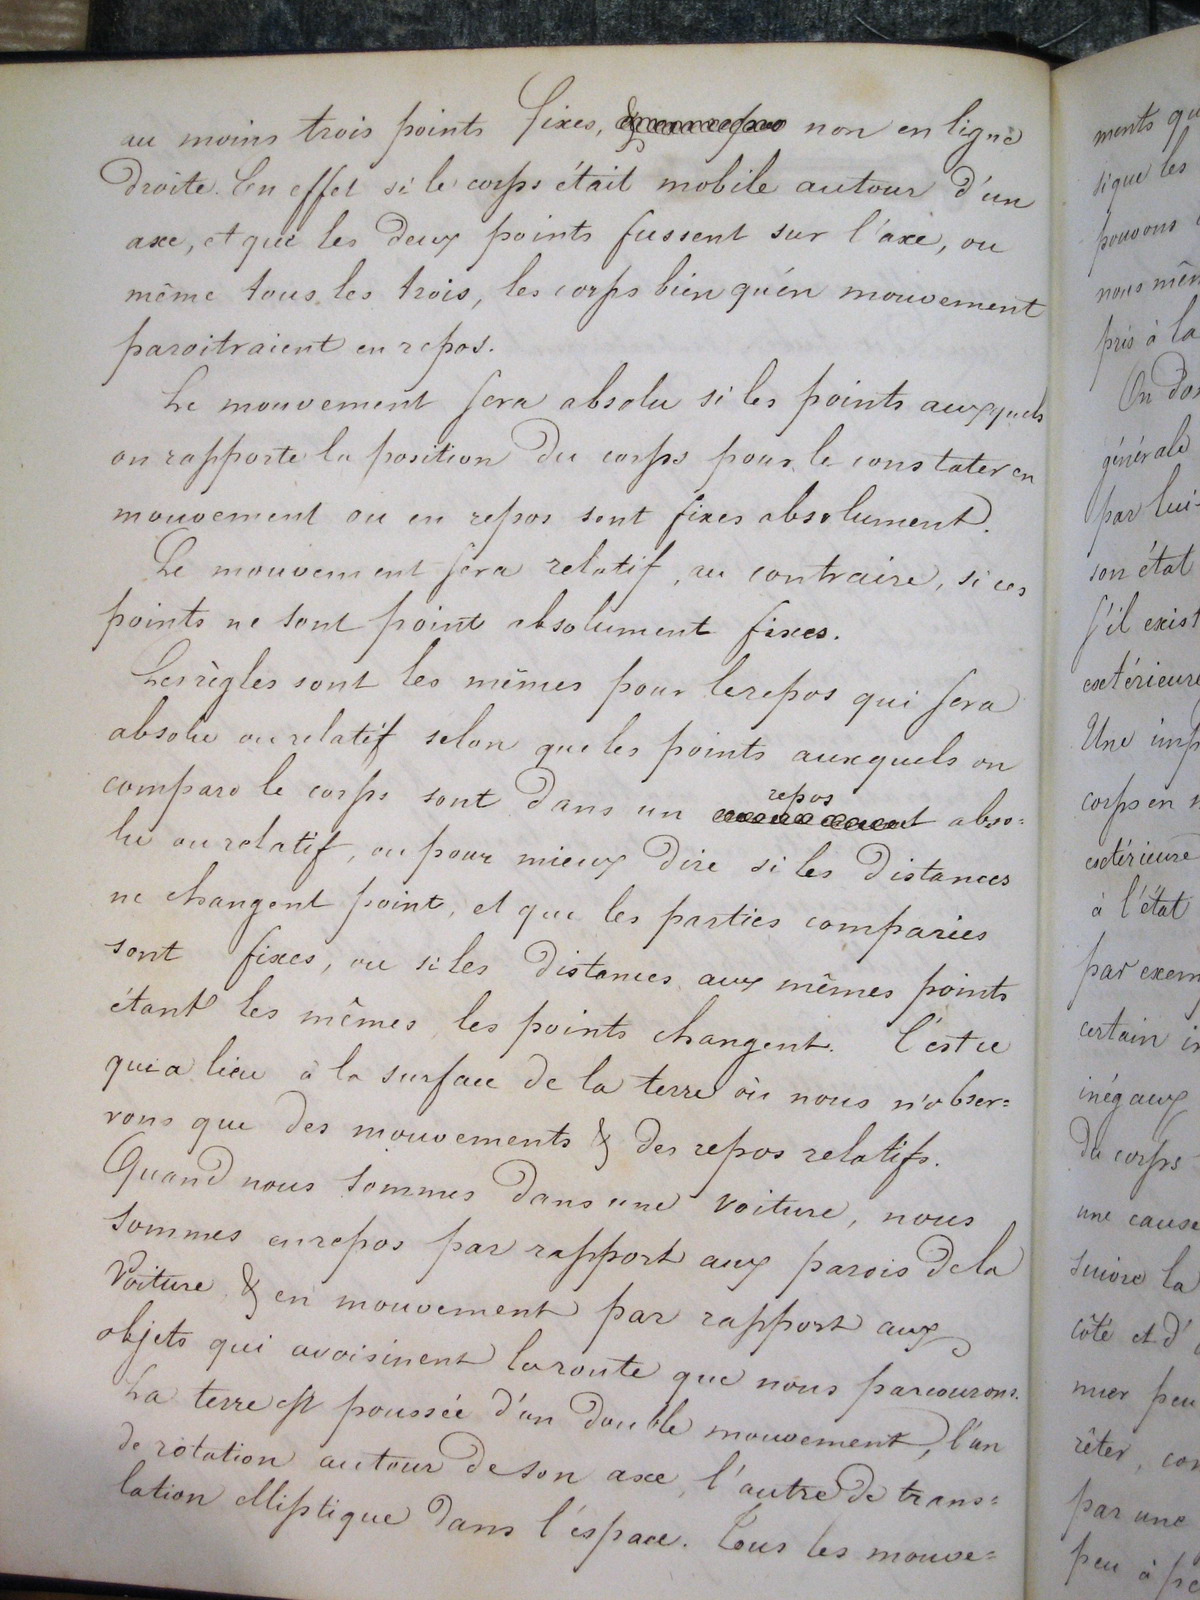 au moins trois points fixes, non en ligne
droite. En effet si le corps était mobile autour d'un
axe, et que les deux points fussent sur l'axe, ou
même tous les trois, les corps bien qu'en mouvement
paroitraient en repos.
Le mouvement sera absolu si les points auxquels
on rapporte la position du corps pour le constater en
mouvement ou en repos sont fixes absolument.
Le mouvement sera relatif, au contraire, si ces
points ne sont point absolument fixes.
Les règles sont les mêmes pour le repos qui sera
absolu ou relatif selon que les points auxquels on
compare le corps sont dans un repos abso=
lu ou relatif, ou pour mieux dire si les distances
ne changent point, et que les parties comparées
sont fixes, ou si les distances aux mêmes points
étant les mêmes les points changent. C'est ce
qui a lieu à la surface de la terre où nous n'obser=
vons que des mouvements & des repos relatifs.
Quand nous sommes dans une voiture, nous
sommes en repos par rapport aux parois de la
voiture & en mouvement par rapport aux
objets qui avoisinent la route que nous parcourons.
La terre est poussée d'un double mouvement, l'un
de rotation autour de son axe, l'autre de trans=
lation elliptique dans l'espace. Tous les mouve=
ments qu
sique les
pouvons
nous mêm
pris à la
On doi
générale
par lui-
son état
s'il exist
extérieure
Une imp
corps en
extérieure
à l'état
par exem
certain in
inégaux
du corps
une cause
suivre la
côté et d'
mer peu
rêter, con
par une
peu à pe